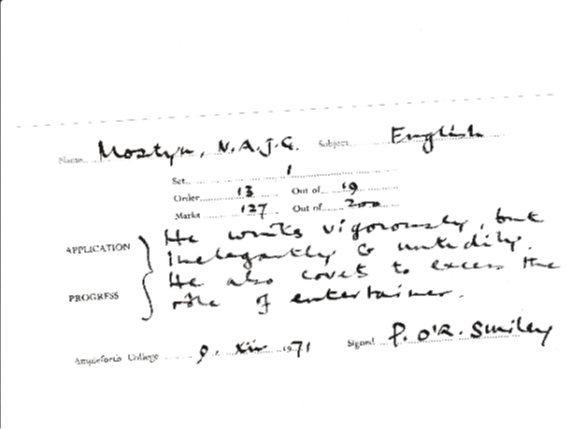 Name Mostyn, N.A.J.G. Subject English
Set 1
Order 13 Out of 19
Marks 127 Out of 200
APPLICATION
PROGRESS
He writes vigorously, but
inelegantly & untidily.
He also covets to excess the
rôle of entertainer.
Ampleforth College 9. xii 1971 Signed P. O'R. Smiley